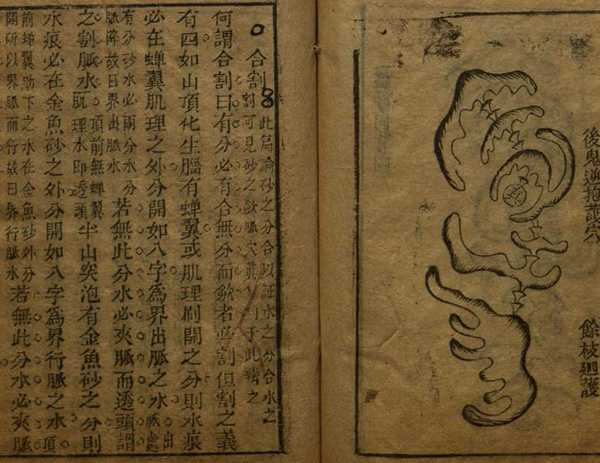 後鬼逆抱護穴
餘枝廻護
合割 此篇論砂之分合以證水之分合水之
割可見砂之
何謂合割曰有分必有合無分而 者必割但割之義
有四如山頂化生腦有蟬翼或肌理刷開之分則水痕
必在蟬翼肌理之外分開如八字為界出脈之水
有分砂水必兩分水分
脈降故曰界出脈水
若無此分水必夾脈而透頭謂
之割脈水
頂前無蟬翼
肌理水即透頭
半山突泡有金魚砂之分則
水痕必在金魚砂之外分開如八字為界行脈之水 頂
前蟬翼肋下之水在金魚砂外分
開所以界脈而行故曰界行脈水
若無此分水必夾脈